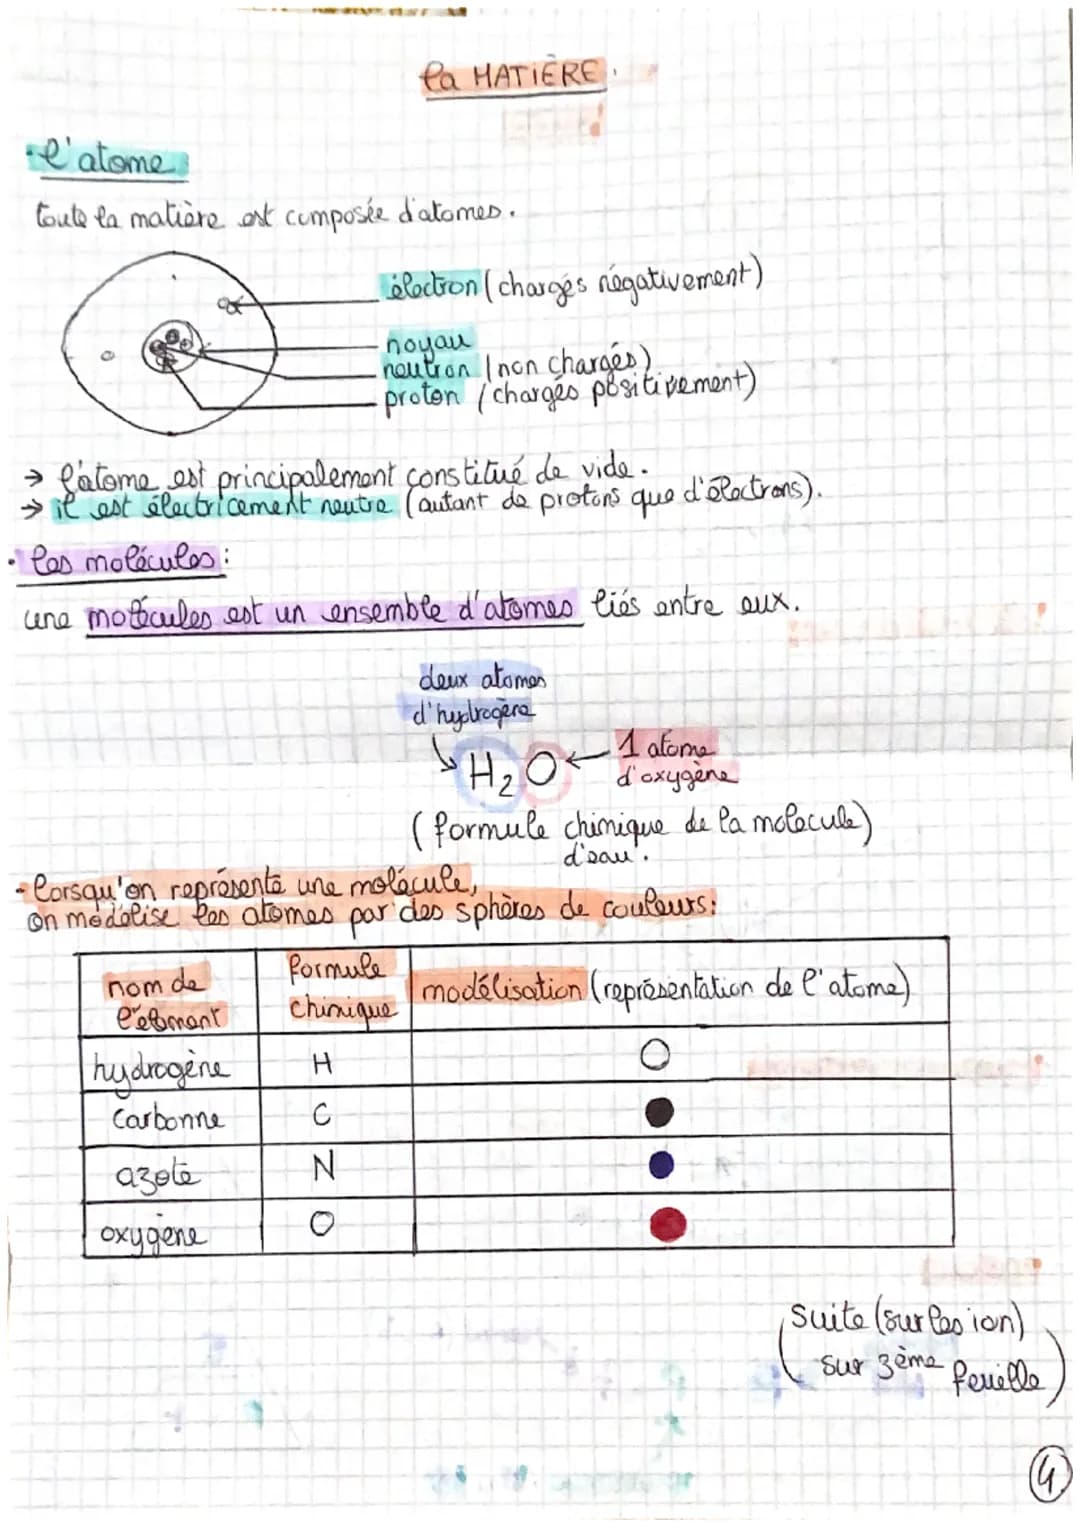 la MATIÈRE.
• l'atome
toute la matière est composée d'atomes.
électron (chargés négativement)
noyau
neutron (non chargés)
proton (chargés positivement)
→ l'atome est principalement constitué de vide.
→ il est électricement neutre (autant de protons que d'électrons).
• les molécules :
une molécules est un ensemble d'atomes liés entre eux.
deux atomes
d'hydrogène
H₂O
1 atome
d'oxygène
(formule chimique de la molecule)
d'eau.
- lorsqu'on représente une molécule,
on modélise les atomes par des sphères de couleurs:
nom de l'élément
formule chimique
modélisation (représentation de l'atome)
hydrogène H
Carbonne C
azote N
oxygène O
Suite (sur les ion)
sur 3ème feuille
4